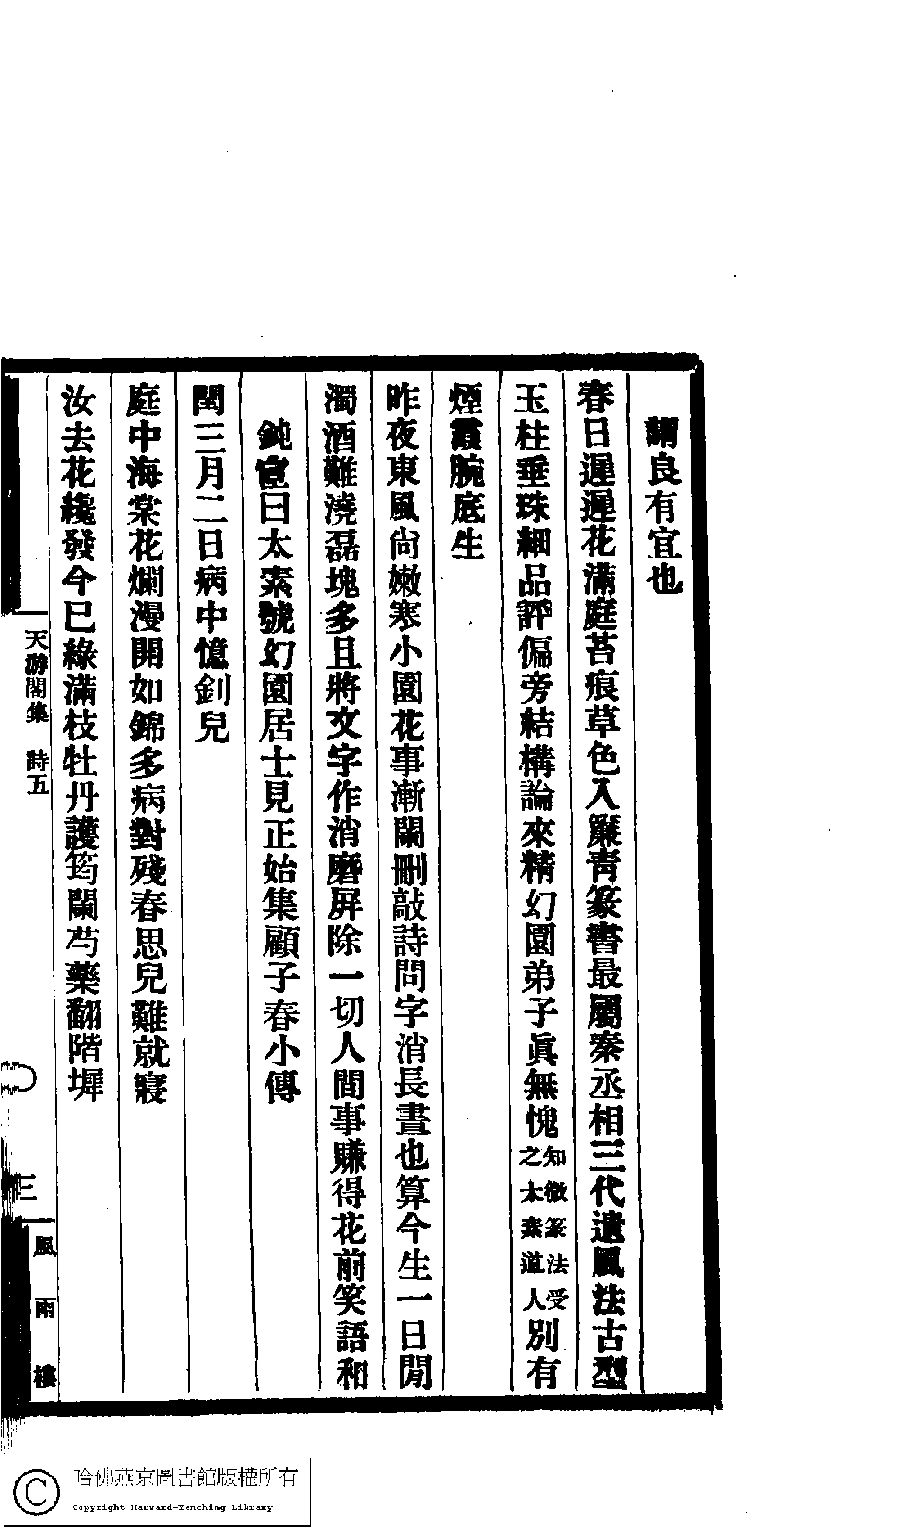 謂良有宜也
春日遲遲花滿庭苔痕草色入簾靑篆書最屬秦丞相三代遺風法古型
玉柱垂珠細品評偏旁結構論來精幻園弟子眞無愧知微篆法受之太素道人別有
煙霞腕底生
昨夜東風尙嫩寒小園花事漸闌刪敲詩問字消長晝也算今生一日閒
濁酒難澆磊塊多且將文字作消磨屛除一切人間事賺得花前笑語和
鈍宧曰太素號幻園居士見正始集顧子春小傳
閏三月二日病中憶釗兒
庭中海棠花爛漫開如錦多病對殘春思兒難就寢
汝去花纔發今已綠滿枝牡丹護筠闌芍藥翻階墀
天游閣集 詩五
三
風雨樓
哈佛燕京圖書館版權所有
Copyright Harvard-Yenching Library